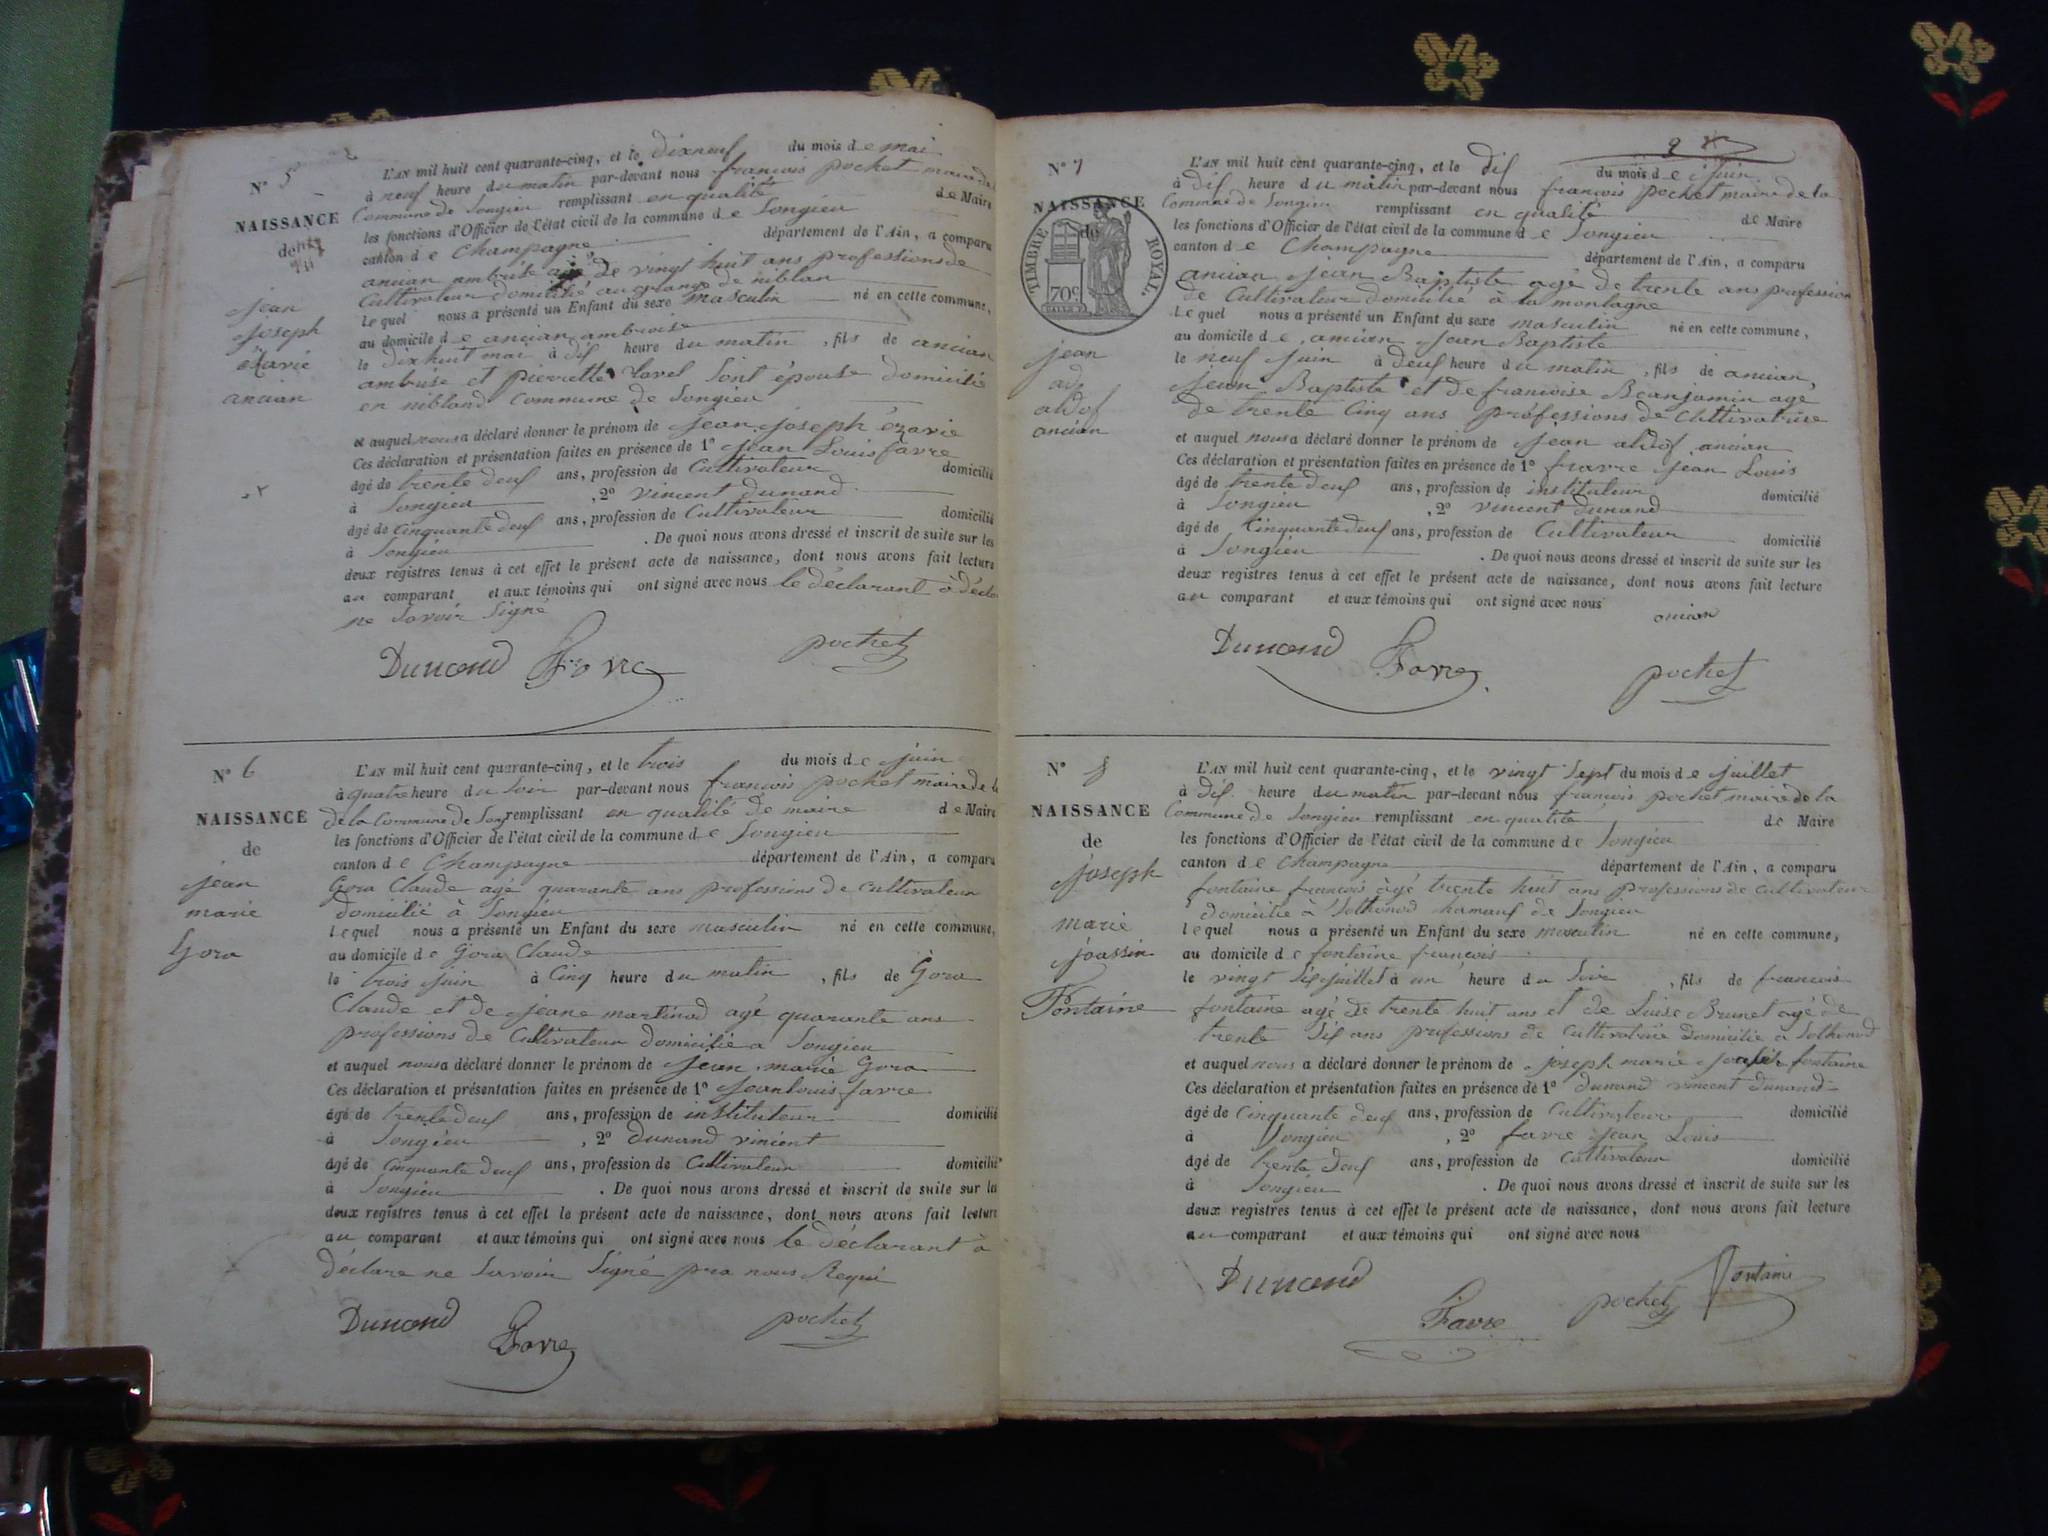 N° 5
NAISSANCE
de
jean
joseph
ézavié
ancian
L'AN mil huit cent quarante-cinq, et le dixneuf du mois de mai
à neuf heure du matin par-devant nous francois pochet maire de la
Commune de Songieu remplissant en qualité de Maire
les fonctions d'Officier de l'état civil de la commune de Songieu
canton de Champagne département de l'Ain, a comparu
ancian ambrise agé de vingt huit ans professions de
Cultivateur domicilié au grange de niblan
Lequel nous a présenté un Enfant du sexe masculin né en cette commune,
au domicile de ancian ambroise
le dixhuit mai à dis heure du matin, fils de ancian
ambrise et pierrette ravel sont épouse domicilié
en nibland Commune de Songieu
et auquel nous a déclaré donner le prénom de jean joseph ézavie
Ces déclaration et présentation faites en présence de 1° jean Louis favre
âgé de trente deus ans, profession de Cultivateur domicilié
à Songieu, 2° vincent dunand
âgé de Cinquante deus ans, profession de Cultivateur domicilié
à Songieu. De quoi nous avons dressé et inscrit de suite sur les
deux registres tenus à cet effet le présent acte de naissance, dont nous avons fait lecture
au comparant et aux témoins qui ont signé avec nous le déclarant à décla
ne Savoir Signé
Dunand Favre pochet
N° 6
NAISSANCE
de
jean
marie
Gora
L'AN mil huit cent quarante-cinq, et le trois du mois de juin
à quatre heure du Soir par-devant nous francois pochet maire de la
de la Commune de Song remplissant en qualité de maire de Maire
les fonctions d'Officier de l'état civil de la commune de Songieu
canton de Champagne département de l'Ain, a comparu
Gora Claude agé quarante ans professions de Cultivateur
domicilié à Songieu
Lequel nous a présenté un Enfant du sexe masculin né en cette commune,
au domicile de Gora Claude
le trois juin à Cinq heure du matin, fils de Gora
Claude et de jeane martinod agé quarante ans
professions de Cultivateur domicilié a Songieu
et auquel nous a déclaré donner le prénom de jean marie Gora
Ces déclaration et présentation faites en présence de 1° jean louis favre
âgé de trente deus ans, profession de instituteur domicilié
à Songieu, 2° dunand vincent
âgé de Cinquante deus ans, profession de Cultivateur domicilié
à Songieu. De quoi nous avons dressé et inscrit de suite sur les
deux registres tenus à cet effet le présent acte de naissance, dont nous avons fait lecture
au comparant et aux témoins qui ont signé avec nous le déclarant à
déclare ne Savoir Signé pra nous Requi
Dunand Favre pochet
2
N° 7
NAISSANCE
de
TIMBRE ROYAL.
70c
jean
ado
aldof
ancian
L'AN mil huit cent quarante-cinq, et le dis du mois de juin
à dis heure du matin par-devant nous francois pochet maire de la
Commune de Songieu remplissant en qualité de Maire
les fonctions d'Officier de l'état civil de la commune de Songieu
canton de Champagne département de l'Ain, a comparu
ancian jean Baptiste agé de trente ans profession
de Cultivateur domicilié à la montagne
Lequel nous a présenté un Enfant du sexe masculin né en cette commune,
au domicile de ancian jean Baptiste
le neuf juin à deus heure du matin, fils de ancian,
jean Baptiste et de francoise Beanjamin agé
de trente Cinq ans professions de Cultivatrise
et auquel nous a déclaré donner le prénom de jean aldof ancian
Ces déclaration et présentation faites en présence de 1° fravre jean Louis
âgé de trente deus ans, profession de instituteur domicilié
à Songieu, 2° vincent dunand
âgé de Cinquante deus ans, profession de Cultivateur domicilié
à Songieu. De quoi nous avons dressé et inscrit de suite sur les
deux registres tenus à cet effet le présent acte de naissance, dont nous avons fait lecture
au comparant et aux témoins qui ont signé avec nous
ancian
Dunand Favre pochet
N° 8
NAISSANCE
de
joseph
marie
joassin
Fontaine
L'AN mil huit cent quarante-cinq, et le vingt Sept du mois de juillet
à dis heure du matin par-devant nous francois pochet maire de la
Commune de Songieu remplissant en qualité de Maire
les fonctions d'Officier de l'état civil de la commune de Songieu
canton de Champagne département de l'Ain, a comparu
fontaine francois àgé trente huit ans professions de Cultivateur
domicilie à Sothonod hameaus de Songieu
Lequel nous a présenté un Enfant du sexe masculin né en cette commune,
au domicile de fontaine francois
le vingt Sis juillet à un heure du Soir, fils de francois
fontaine agé de trente huit ans et de Luise Brunet agé de
trente Sis ans professions de Cultivatrise domicilie a Sothonod
et auquel nous a déclaré donner le prénom de joseph marie fontaine
Ces déclaration et présentation faites en présence de 1° dunand vincent dunand
âgé de Cinquante deus ans, profession de Cultivateur domicilié
à Songieu, 2° favre jean Louis
âgé de trente deus ans, profession de Cultivateur domicilié
à Songieu. De quoi nous avons dressé et inscrit de suite sur les
deux registres tenus à cet effet le présent acte de naissance, dont nous avons fait lecture
au comparant et aux témoins qui ont signé avec nous
Dunand Favre pochet fontaine